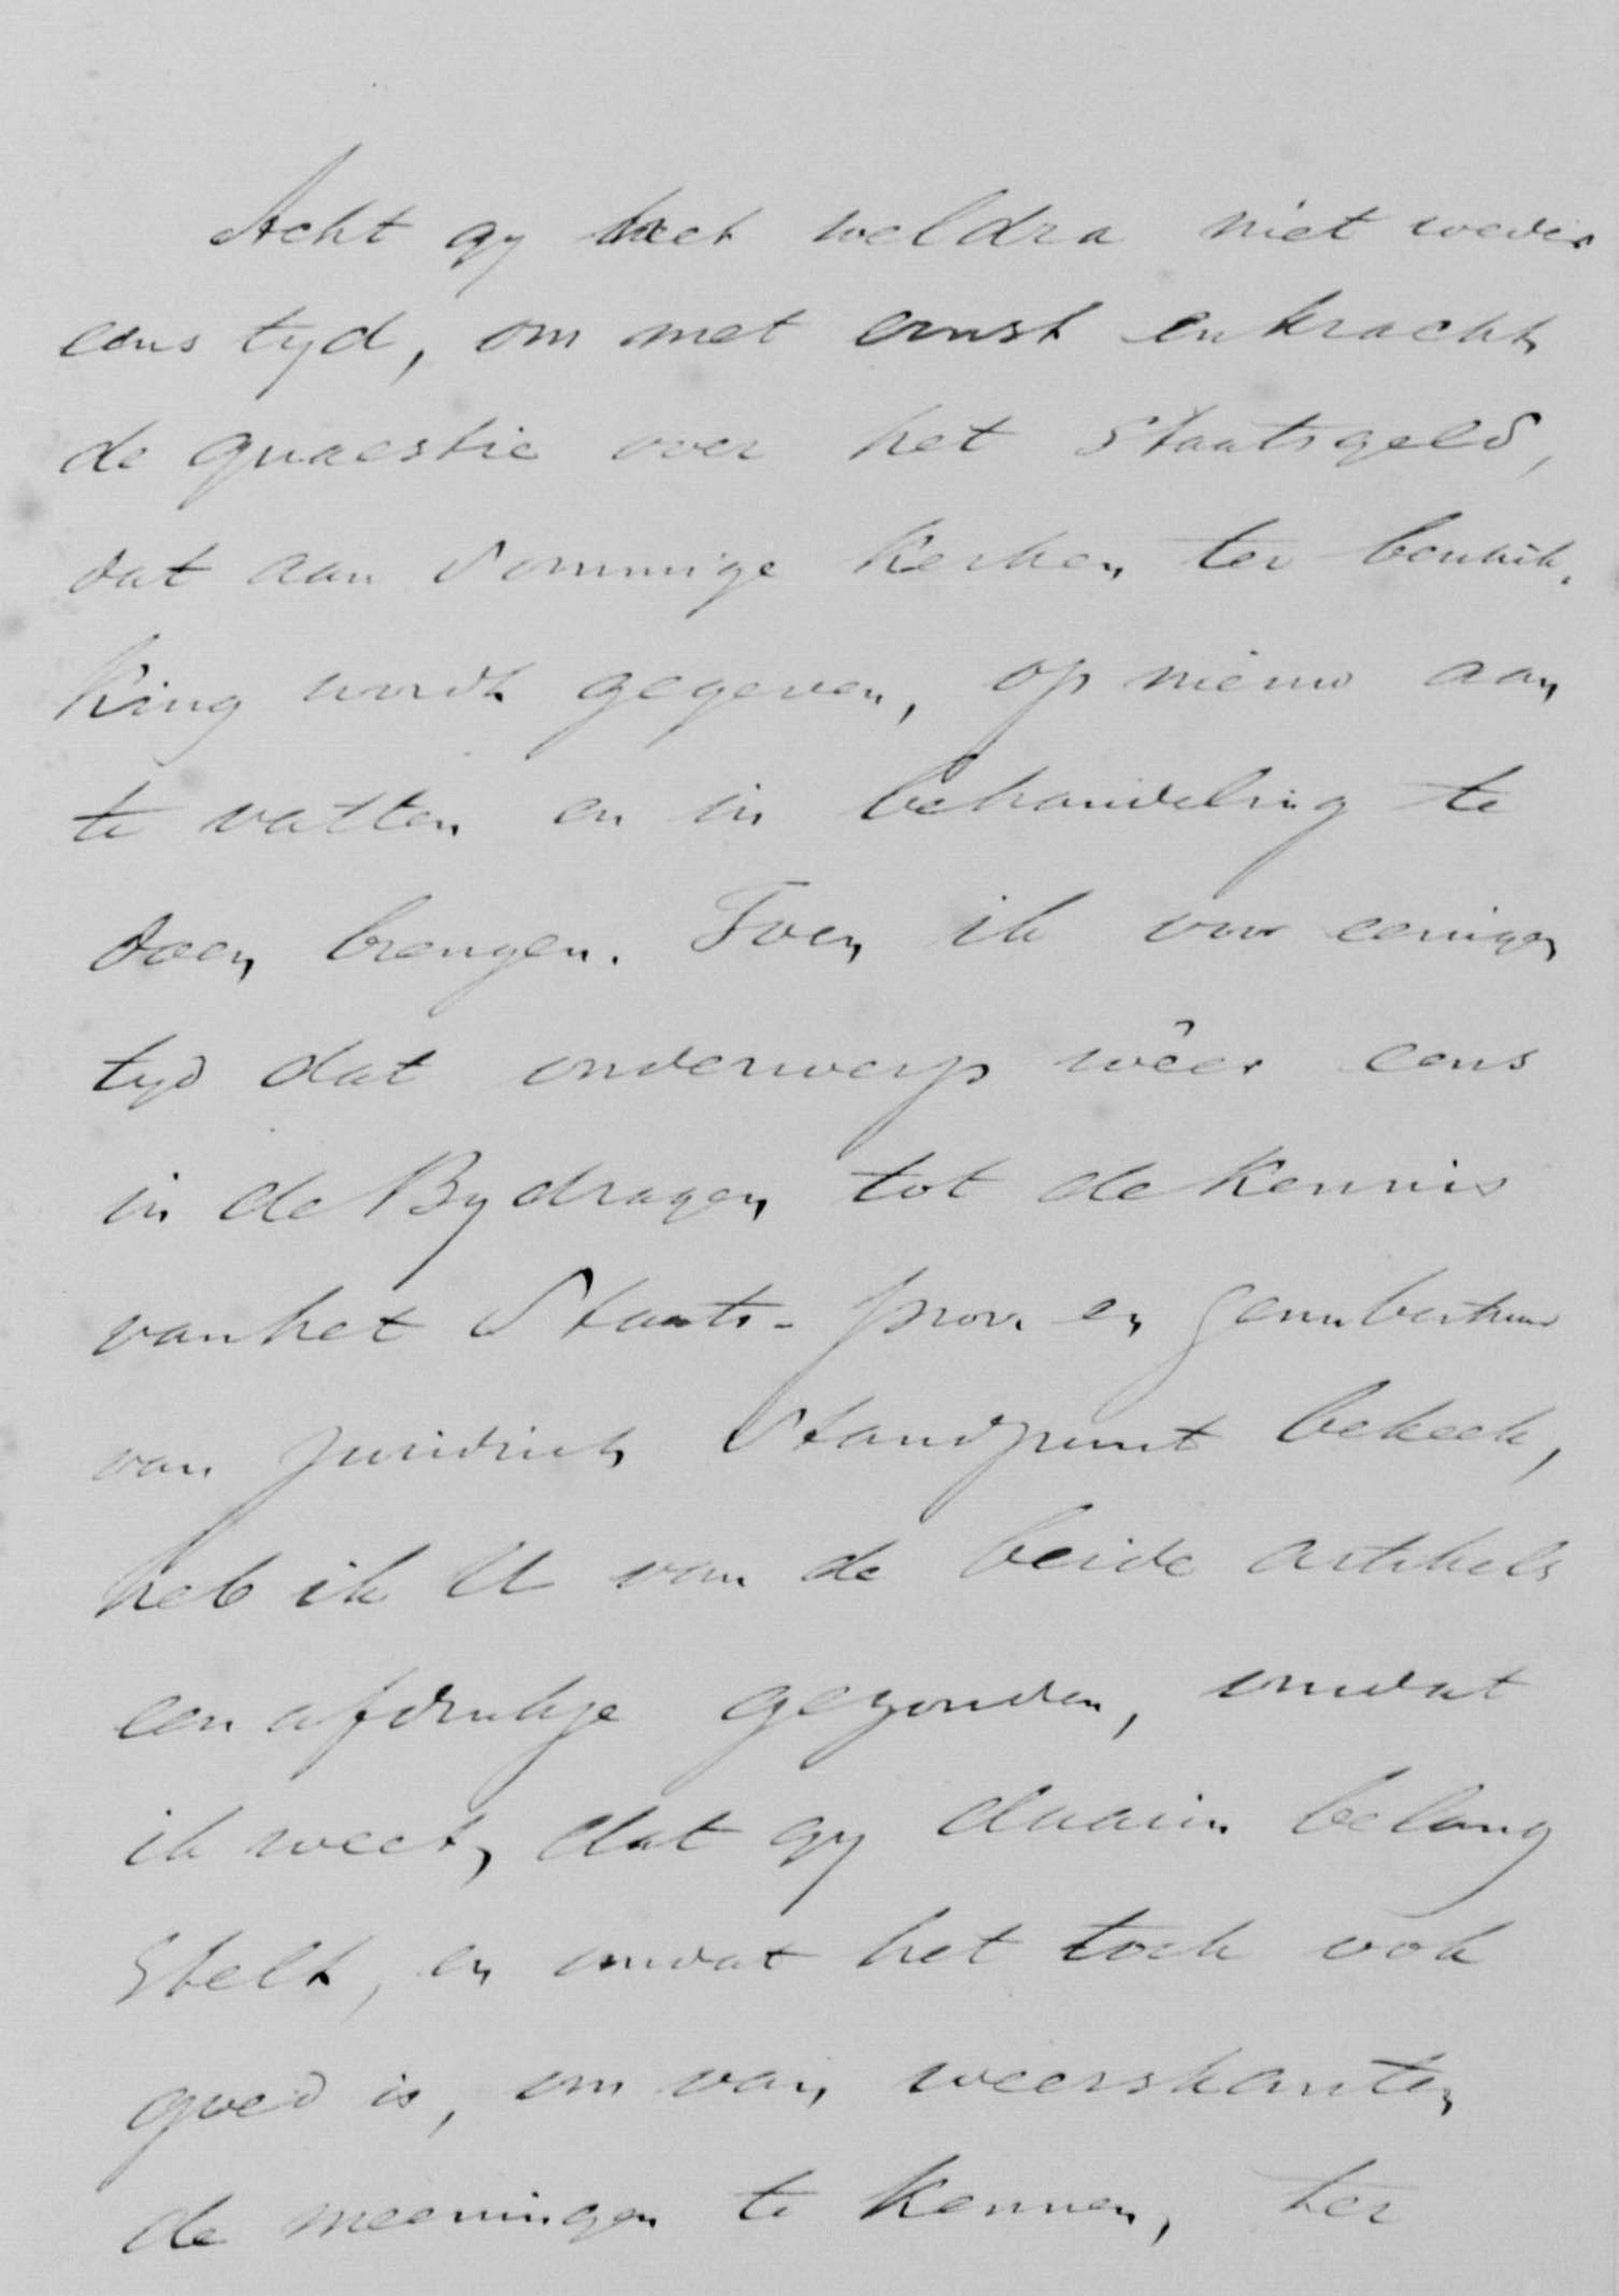 Acht gy het weldra niet weder
eens tyd, om met ernst en kracht
de quaestie over het Staatsgeld,
dat aan sommige Kerken ter beschik-
king wordt gegeven, op nieuw aan
te vatten en in behandeling te
doen brengen. Toen ik voor eenigen
tyd dat onderwerp wêer eens
in de Bydragen tot de Kennis
van het Staats- prov. en Gem. bestuur
van juridisch Standpunt bekeek,
heb ik U van de beide artikels
een afdrukje gezonden, omdat
ik weet, dat gy daarin belang
Stelt, en omdat het toch ook
goed is, om van weerskanten
de meeningen te kennen, ter